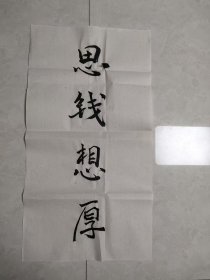 思钱想厚